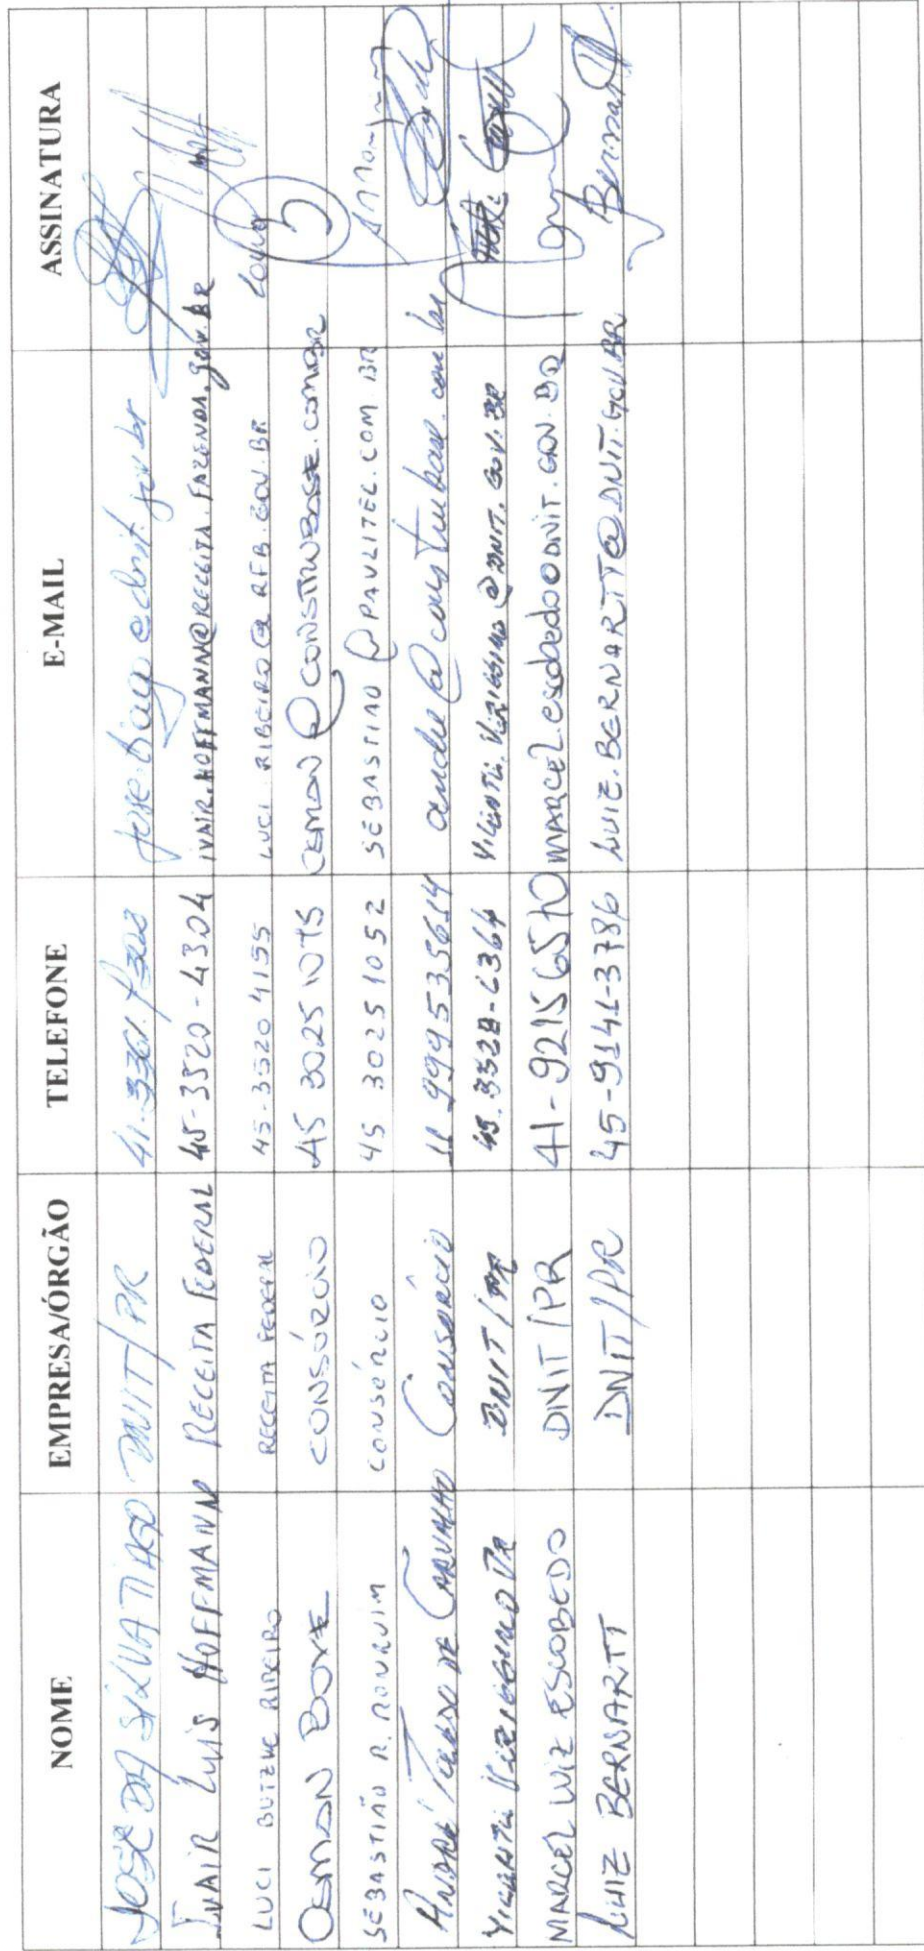 NOME EMPRESA/ÓRGÃO TELEFONE E-MAIL ASSINATURA
JOSÉ DA SILVA TIAGO DNIT/PR jose.tiago@dnit.gov.br
IVAIR LUIS HOFFMANN RECEITA FEDERAL 45-3520-4304 IVAIR.HOFFMANN@RECEITA.FAZENDA.gov.BR
LUCI BUTZKE RIBEIRO RECEITA FEDERAL 45-3520 4155 LUCI.RIBEIRO@RFB.GOV.BR
OSMAN BOVE CONSÓRCIO 45 30251075 OSMAN@CONSTRUBASE.COM.BR
SEBASTIÃO R. CONSÓRCIO 45 3025 1052 SEBASTIAO@PAULITEC.COM.BR
ANDRÉ DE CARVALHO Consórcio 11 999535614 andre@construbase.com.br
DNIT/PR @DNIT.GOV.BR
MARCEL LUIZ ESCOBEDO DNIT/PR 41-92156570 MARCEL.escobedo@DNIT.GOV.BR
LUIZ BERNARTT DNIT/PR 45-9141-3786 LUIZ.BERNARTT@DNIT.GOV.BR